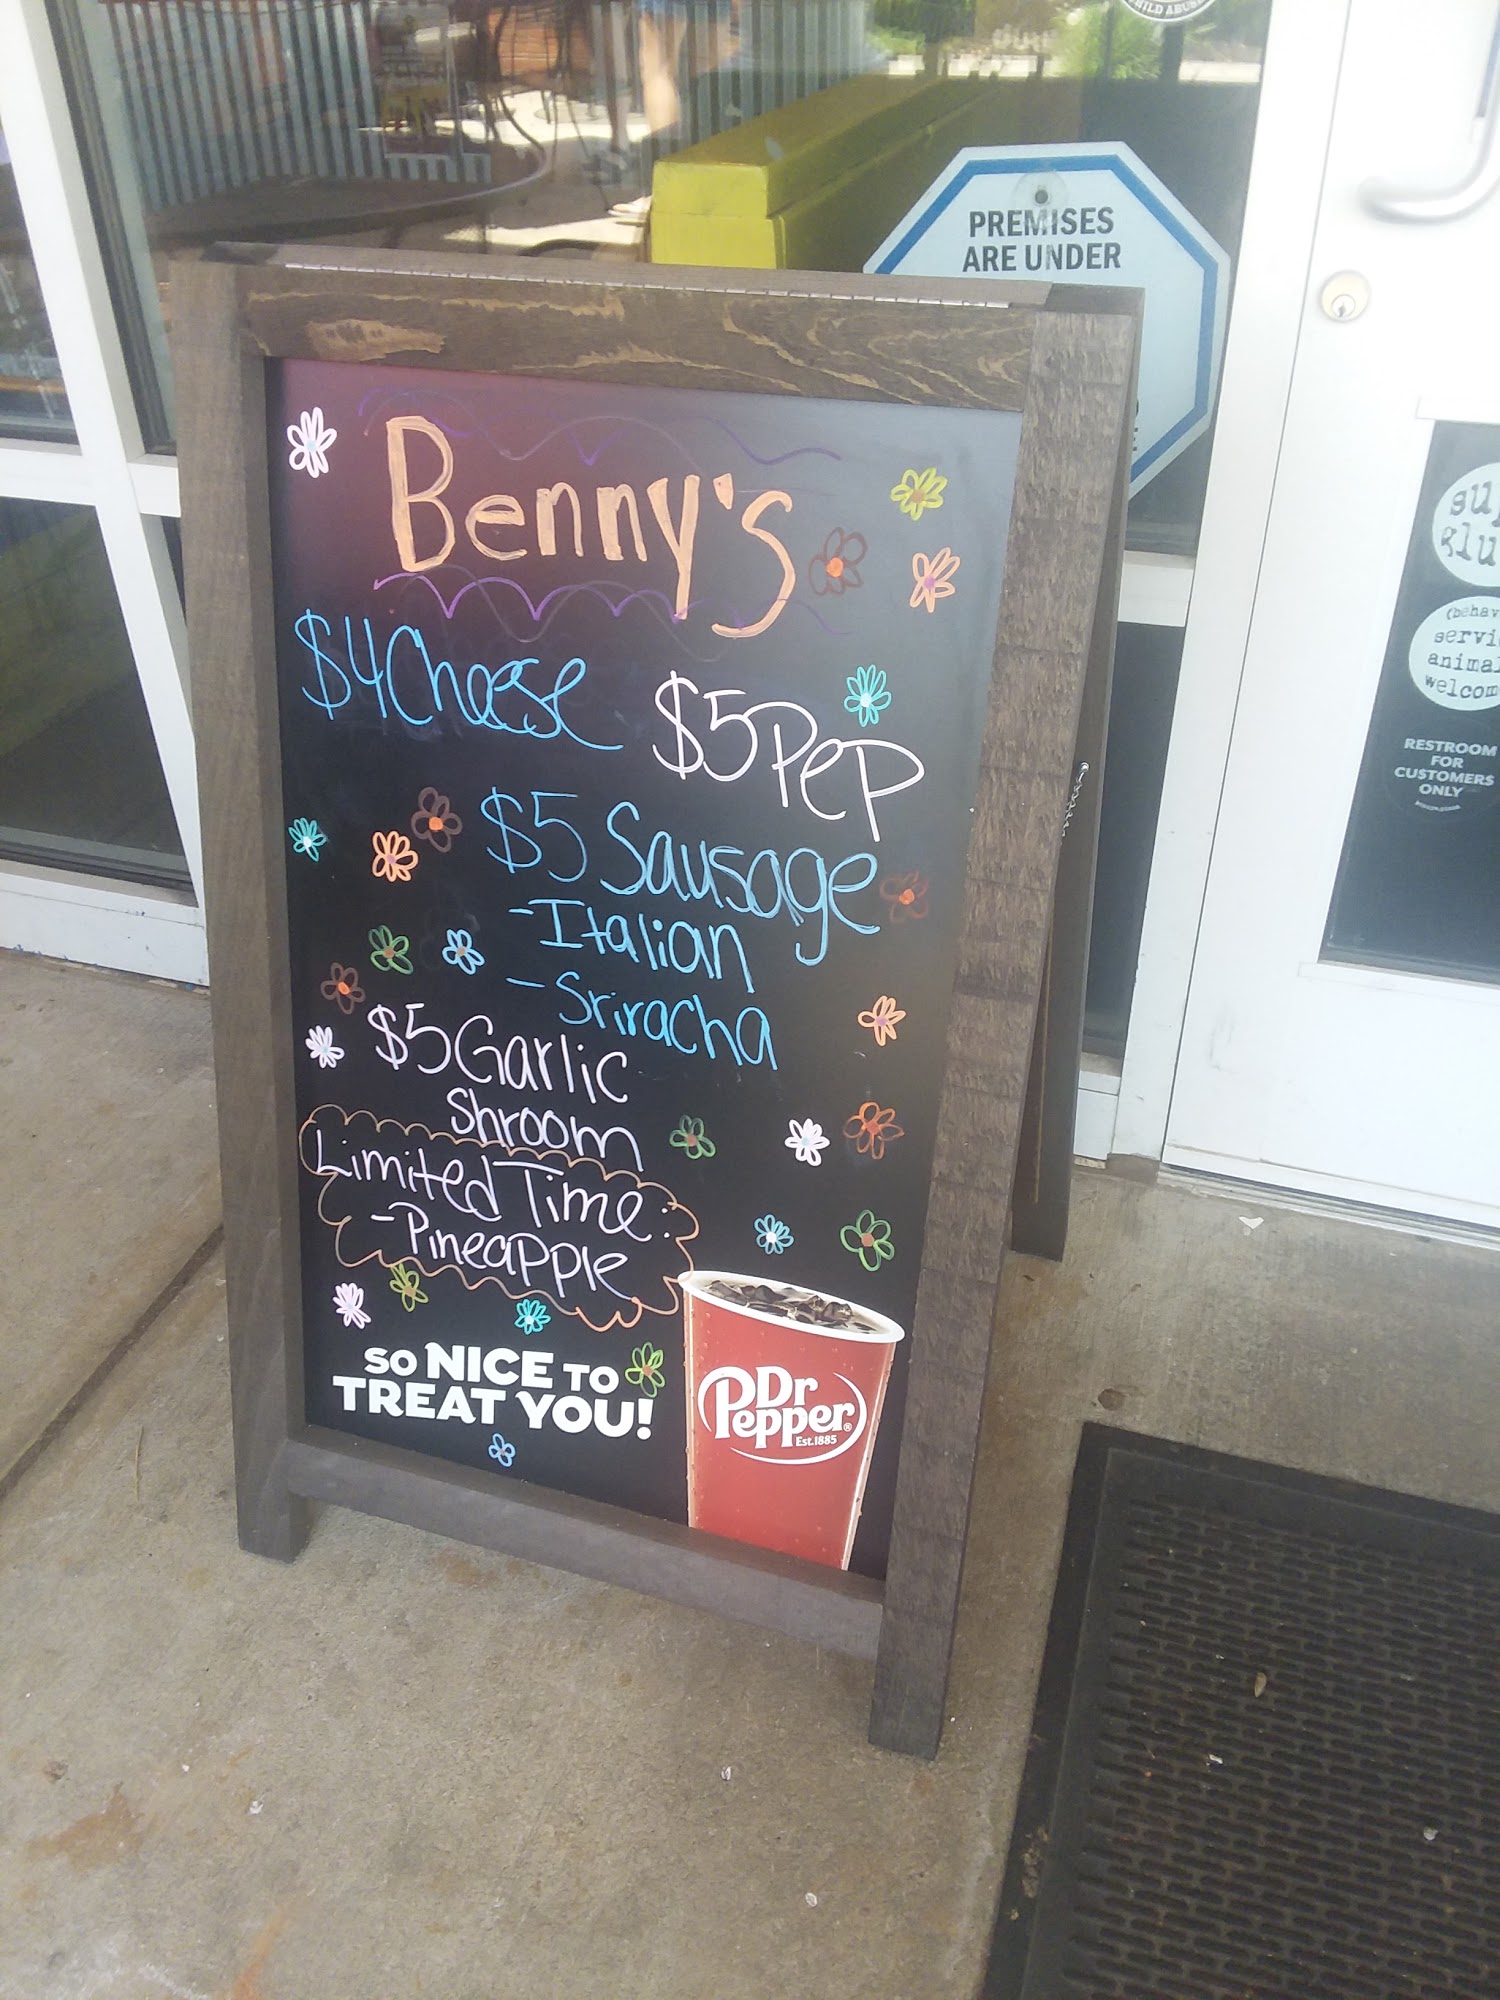 PREMISES
ARE UNDER
Benny's
$4 Cheese
$5 Pep
$5 Sausage
- Italian
- Sriracha
$5 Garlic
Shroom
Limited Time:
- Pineapple
SO NICE TO
TREAT YOU!
Dr
Pepper®
Est. 1885
servi
animal
welcom
RESTROOM
FOR
CUSTOMERS
ONLY